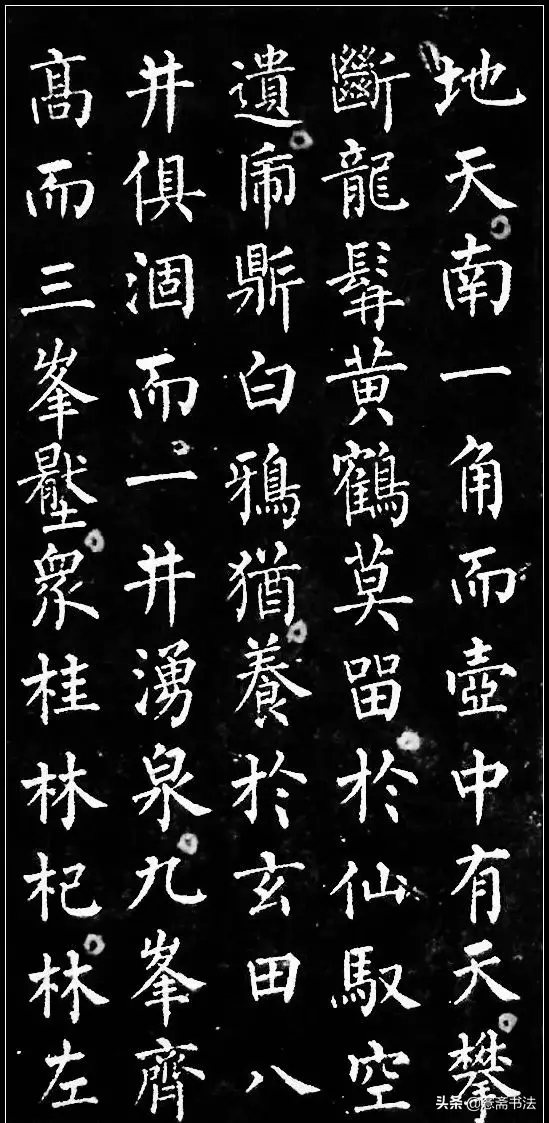 地天南一角而壺中有天攀
斷龍髯黃鶴莫留於仙馭空
遺虎鼎白鴉猶養於玄田八
井俱涸而一井湧泉九峯齊
髙而三峯壓眾桂林杞林左
头条 @斋书法